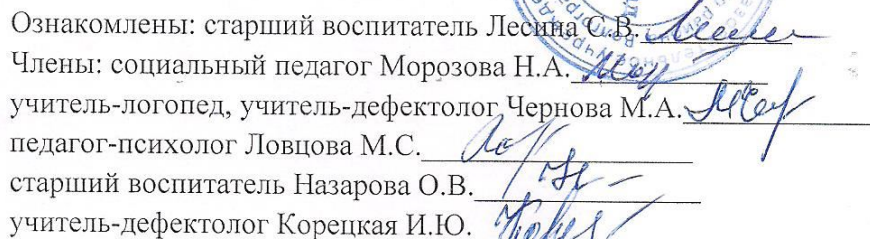 Ознакомлены: старший воспитатель Лесина С.В.
Члены: социальный педагог Морозова Н.А.
учитель-логопед, учитель-дефектолог Чернова М.А.
педагог-психолог Ловцова М.С.
старший воспитатель Назарова О.В.
учитель-дефектолог Корецкая И.Ю.